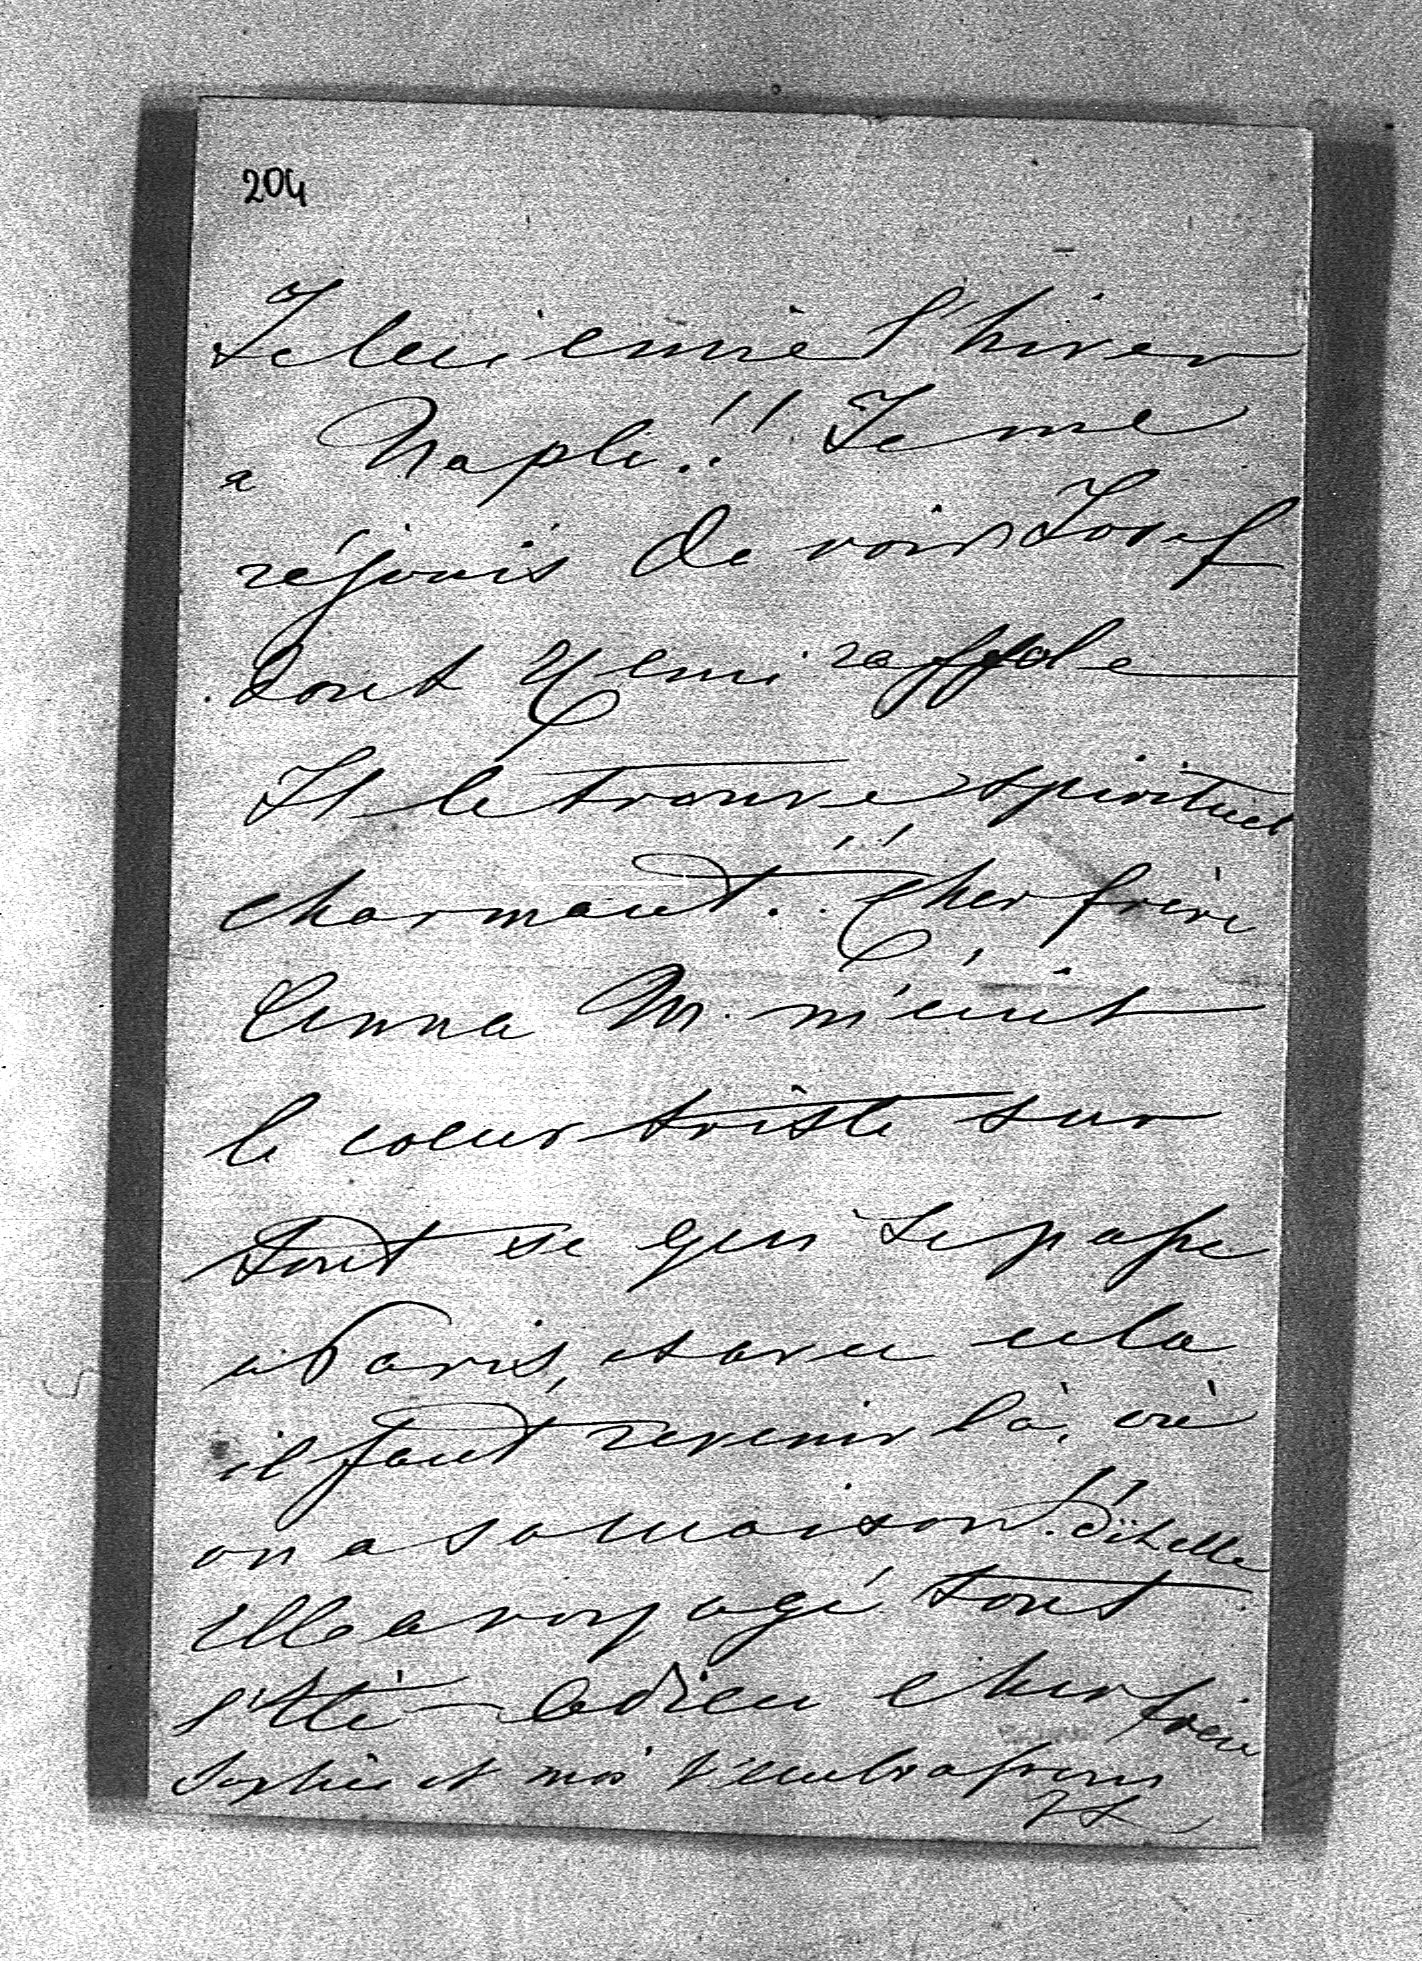 204
Je lui envie l'hiver
a Naples!! Je me
réjouis de voir Josef
dont Henri raffole
Il le trouve spirituel
charmant!! Cher frère
Anna M. m'écrit
le coeur triste sur
tout se qui se passe
à Paris, et avec cela
il faut revenir là, où
on a sa maison!! dit elle
elle a voyagé tout
l'été – Adieu cher frère
Sophie et moi t'embrassons